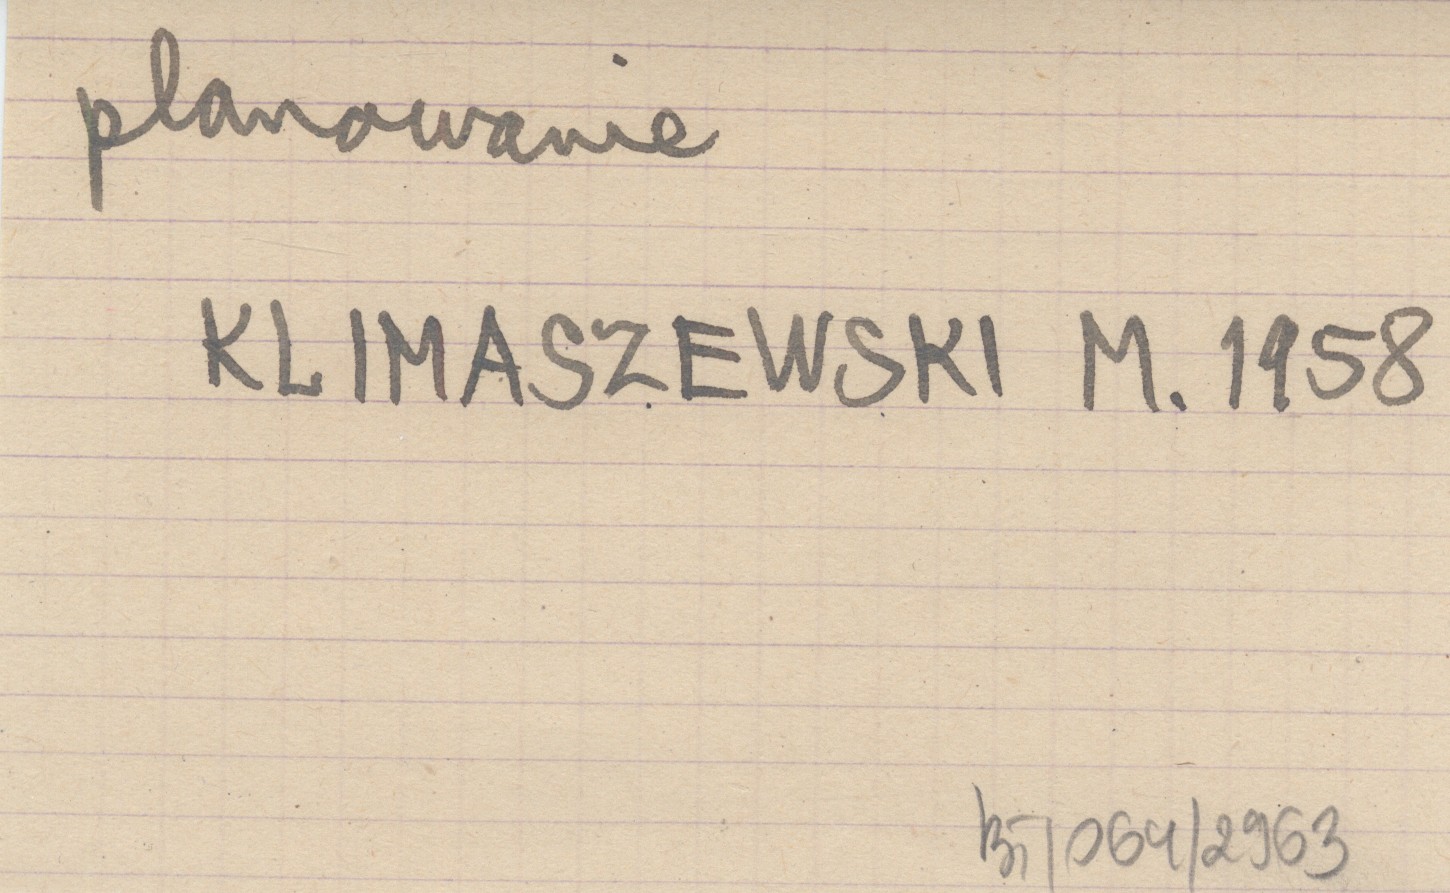 planowanie
KLIMASZEWSKI M. 1958
BT/064/2963